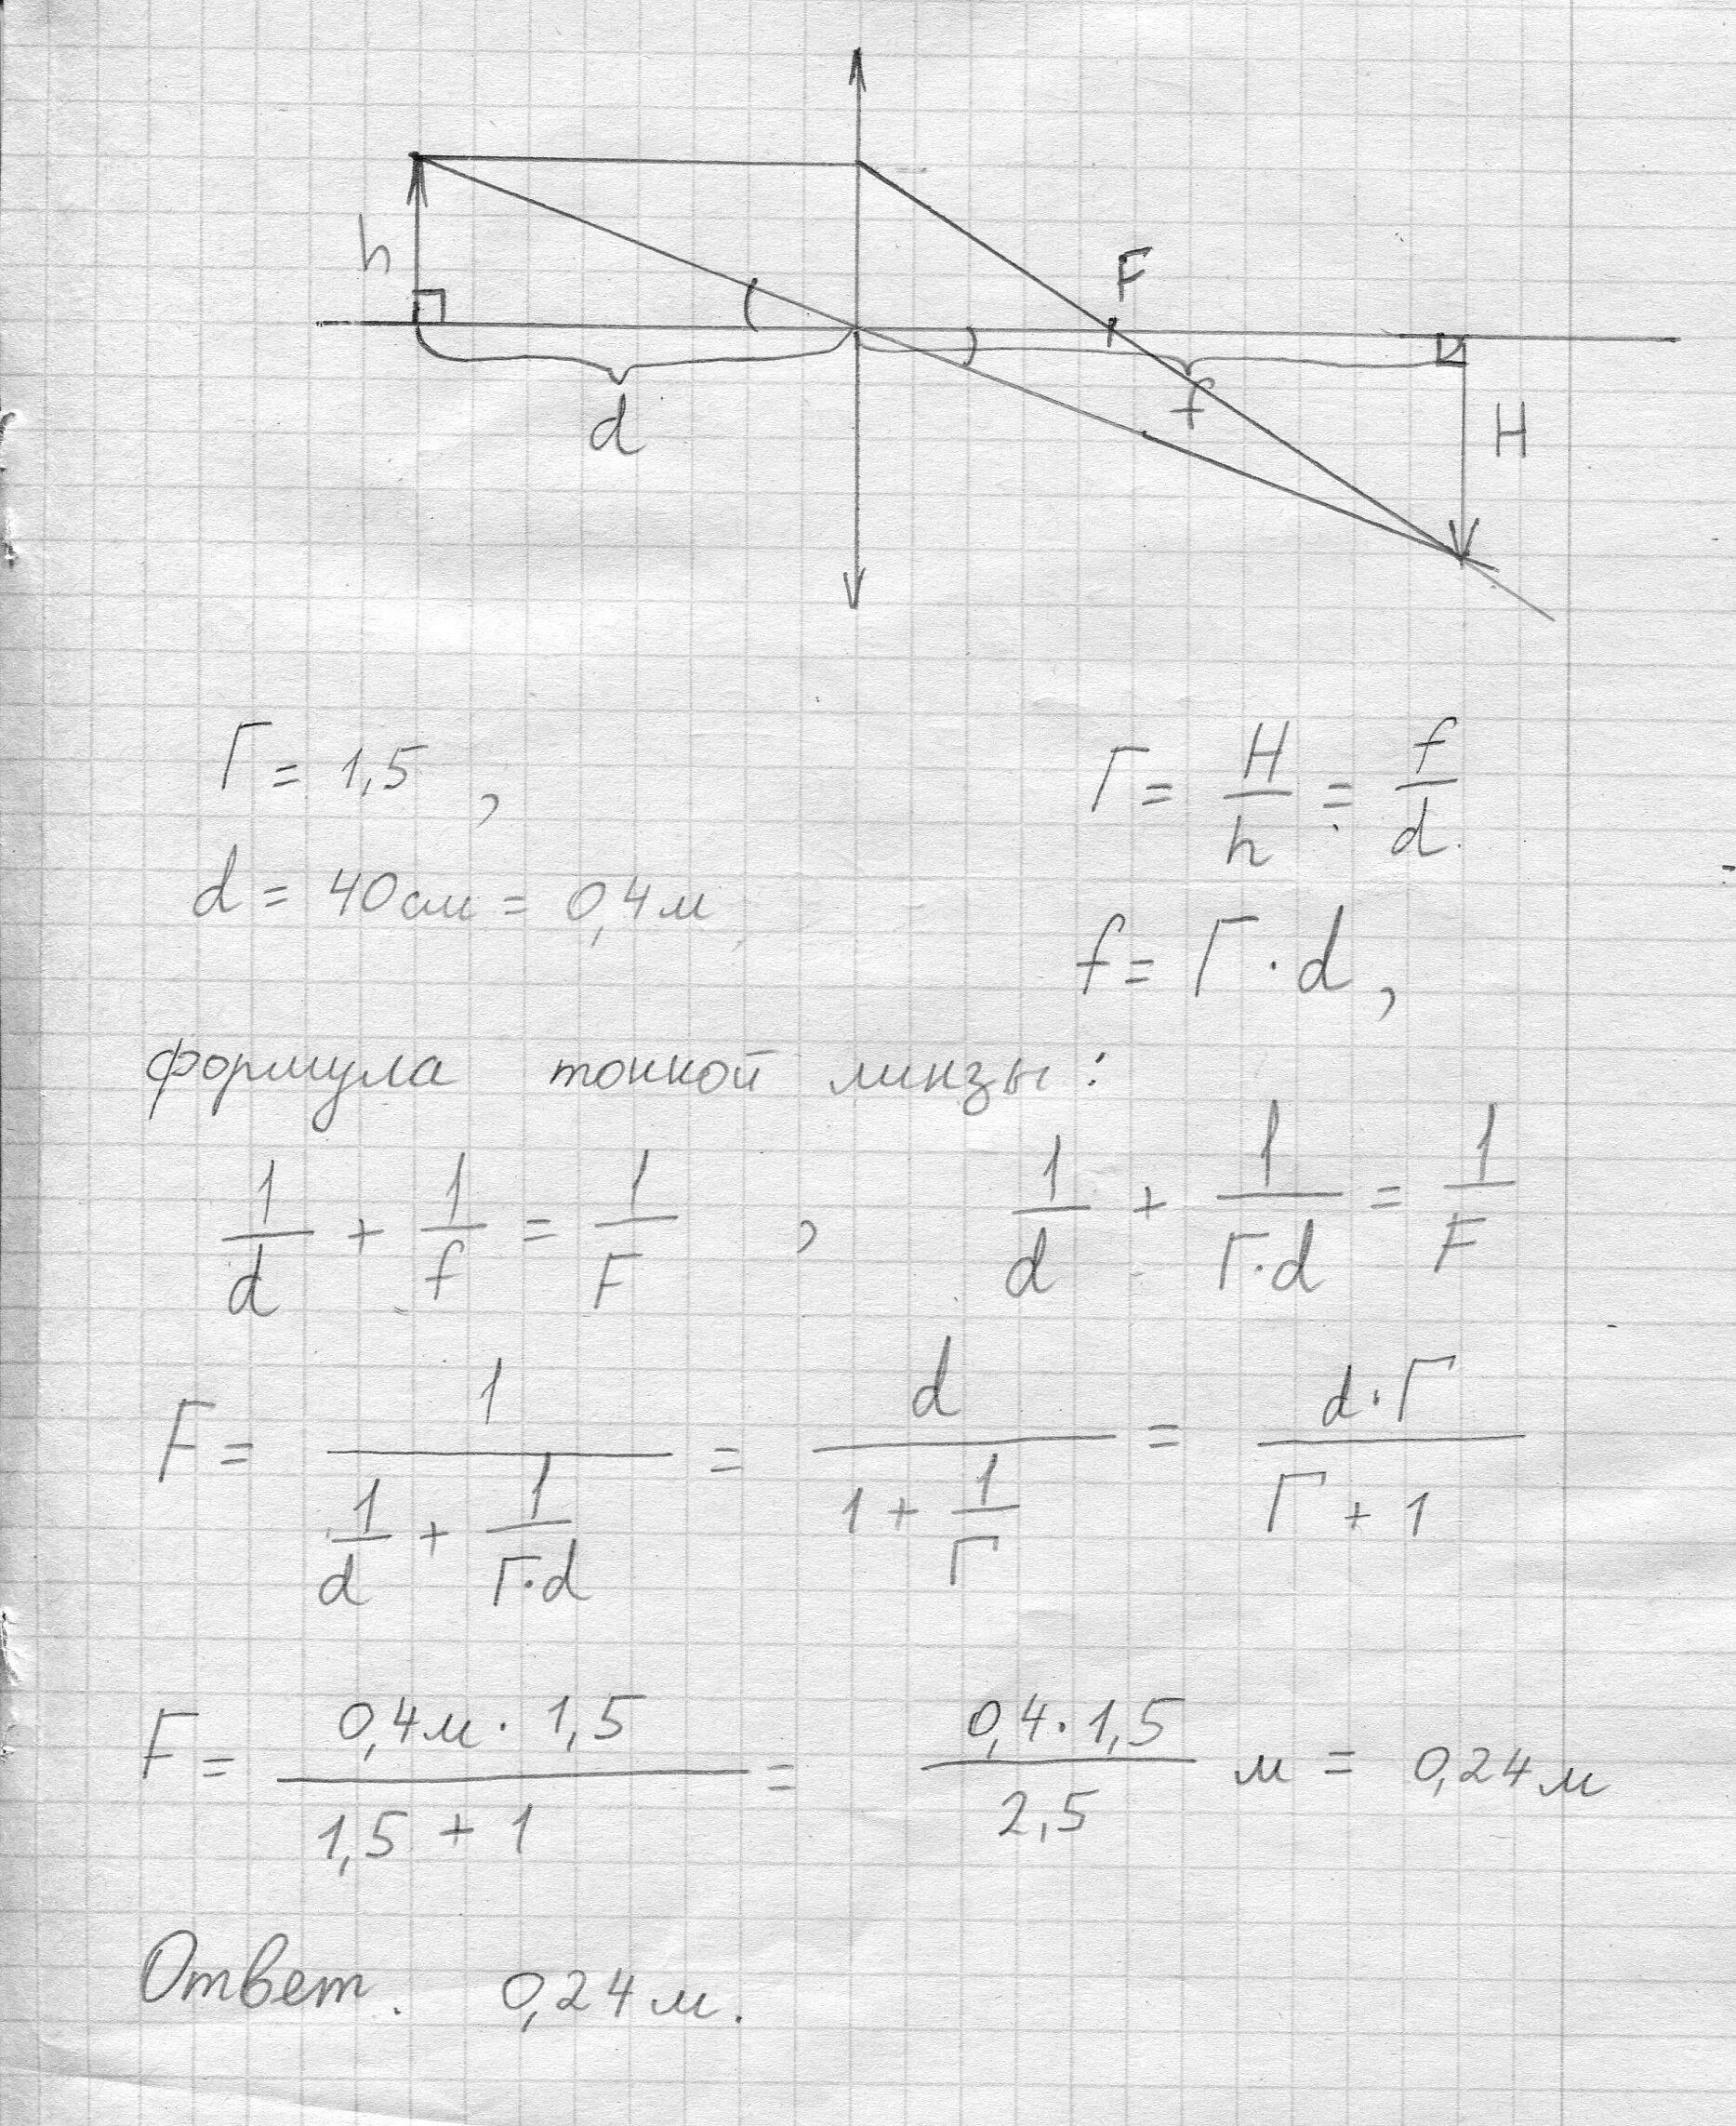 h
F
d
f
H
Г = 1,5 ,
Г = H/h = f/d.
d = 40 см = 0,4 м
f = Г · d ,
формула тонкой линзы:
1/d + 1/f = 1/F , 1/d + 1/(Г·d) = 1/F
F = 1/(1/d + 1/(Г·d)) = d/(1 + 1/Г) = d·Г/(Г + 1)
F = (0,4 м · 1,5)/(1,5 + 1) = (0,4 · 1,5)/2,5 м = 0,24 м
Ответ. 0,24 м.